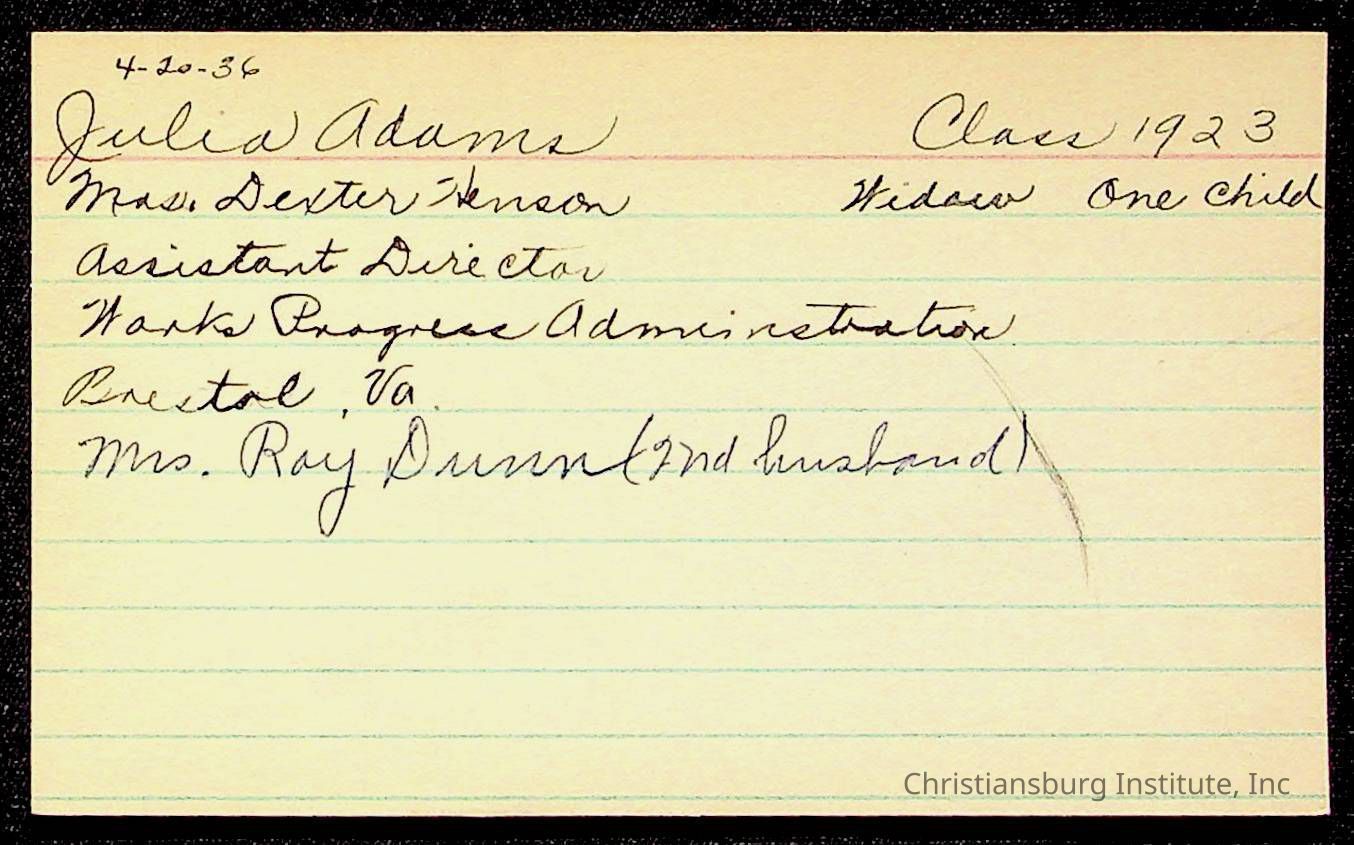 4-20-36
Julia Adams Class 1923
Mrs. Dexter Henson Widow One Child
Assistant Director
Works Progress Adminstration
Bristol, Va.
Mrs. Roy Dunn (2nd husband)
Christiansburg Institute, Inc